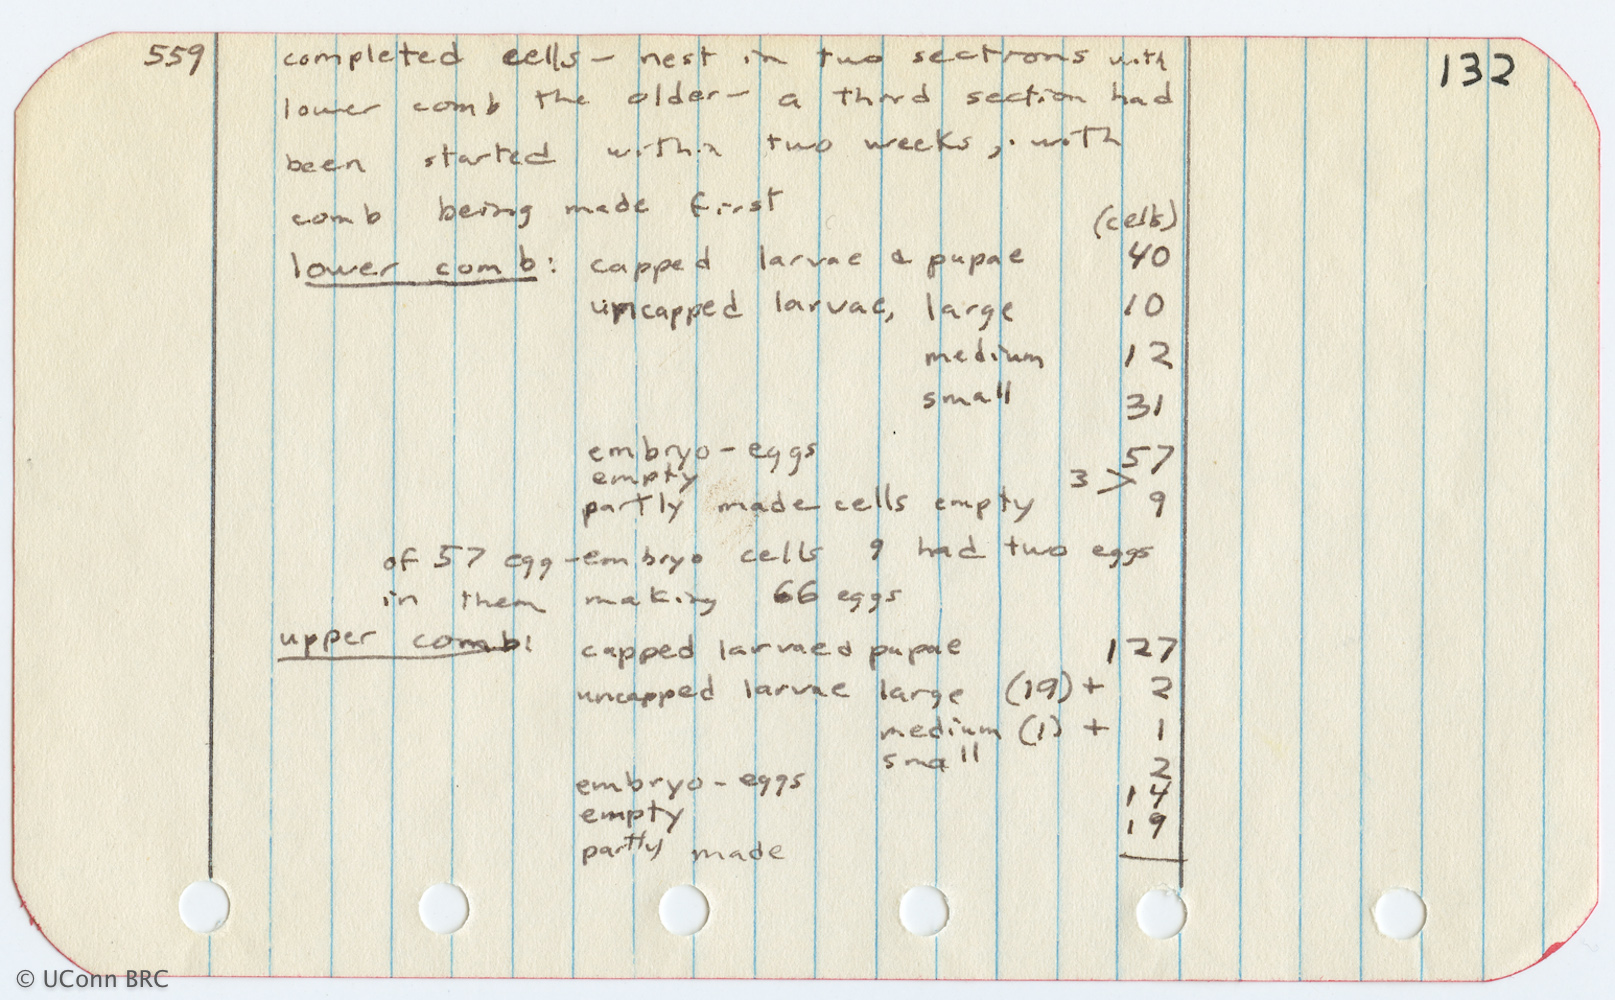 559 completed cells - nest in two sections with 132
lower comb the older - a third section had
been started within two weeks, with
comb being made first
(cells)
lower comb: capped larvae & pupae 40
uncapped larvae, large 10
medium 12
small 31
embryo-eggs 57
empty 3 >
partly made cells empty 9
of 57 egg-embryo cells 9 had two eggs
in them making 66 eggs
upper comb: capped larvae & pupae 127
uncapped larvae large (19) + 2
medium (1) + 1
small 2
embryo-eggs 14
empty 19
partly made —
© UConn BRC